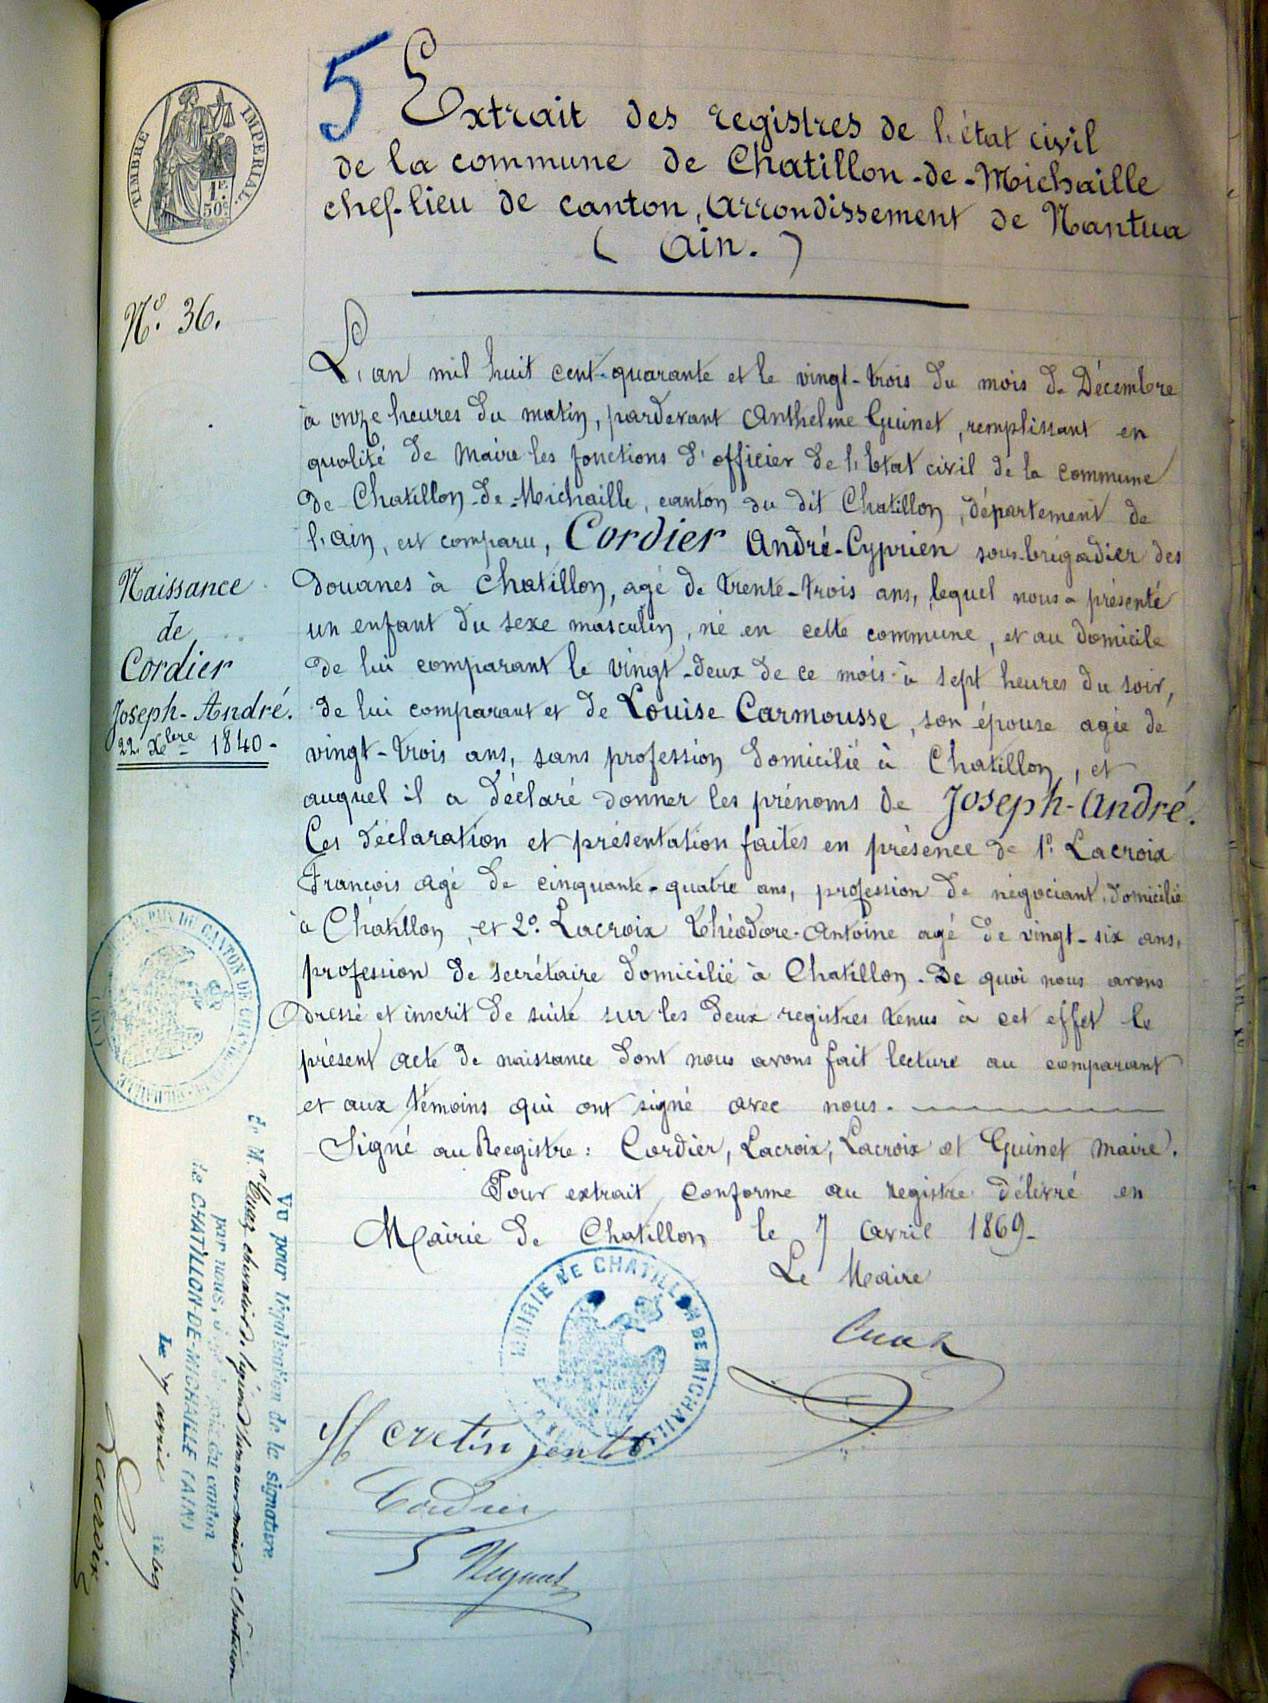 5
TIMBRE IMPERIAL
1F. 50c.
Extrait des registres de l'état civil
de la commune de Chatillon-de-Michaille
chef-lieu de canton, Arrondissement de Nantua
( Ain. )
N° 36.
Naissance
de
Cordier
Joseph-André.
22 Xbre 1840-
L'an mil huit cent-quarante et le vingt-trois du mois de Décembre
à onze heures du matin, pardevant Anthelme Guinet, remplissant en
qualité de Maire les fonctions d'officier de l'Etat civil de la commune
de Chatillon-de-Michaille, canton du dit Chatillon, département de
l'ain, est comparu, Cordier André-Cyprien sous-brigadier des
Douanes à Chatillon, agé de trente-trois ans, lequel nous a présenté
un enfant du sexe masculin, né en cette commune, et au domicile
de lui comparant le vingt-deux de ce mois à sept heures du soir,
de lui comparant et de Louise Carmousse, son épouse agée de
vingt-trois ans, sans profession domicilié à Chatillon, et
auquel il a déclaré donner les prénoms de Joseph-André.
Ces déclaration et présentation faites en présence de 1° Lacroix
François agé de cinquante-quatre ans, profession de négociant domicilié
à Chatillon, et 2° Lacroix Théodore-Antoine agé de vingt-six ans,
profession de secrétaire domicilié à Chatillon. De quoi nous avons
dressé et inscrit de suite sur les deux registres tenus à cet effet le
présent acte de naissance dont nous avons fait lecture au comparant
et aux témoins qui ont signé avec nous.
Signé au Registre: Cordier, Lacroix, Lacroix et Guinet maire.
Pour extrait conforme au registre délivré en
Mairie de Chatillon le 7 avril 1869-
Le Maire
MAIRIE DE CHATILLON DE MICHAILLE
Cordier
Vu pour légalisation de la signature
de Mr chevalier de légion d'honneur maire de Chatillon
par nous, du canton
de CHATILLON-DE-MICHAILLE (AIN)
Le 7 avril 1869
Lacroix